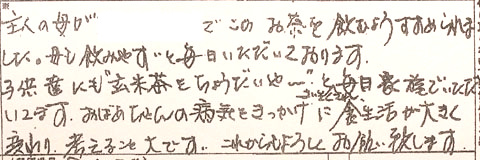 主人の母が　　　　　　でこのお茶を飲むようすすめられま
した。母も飲みやすいと毎日いただいております。
子供達にも"玄米茶をちょうだいや〜"と毎日家族でいただ
いてます。おばあちゃんの病気をきっかけに食生活が大きく
変わり、考えること大です。これからもよろしくお願い致します。